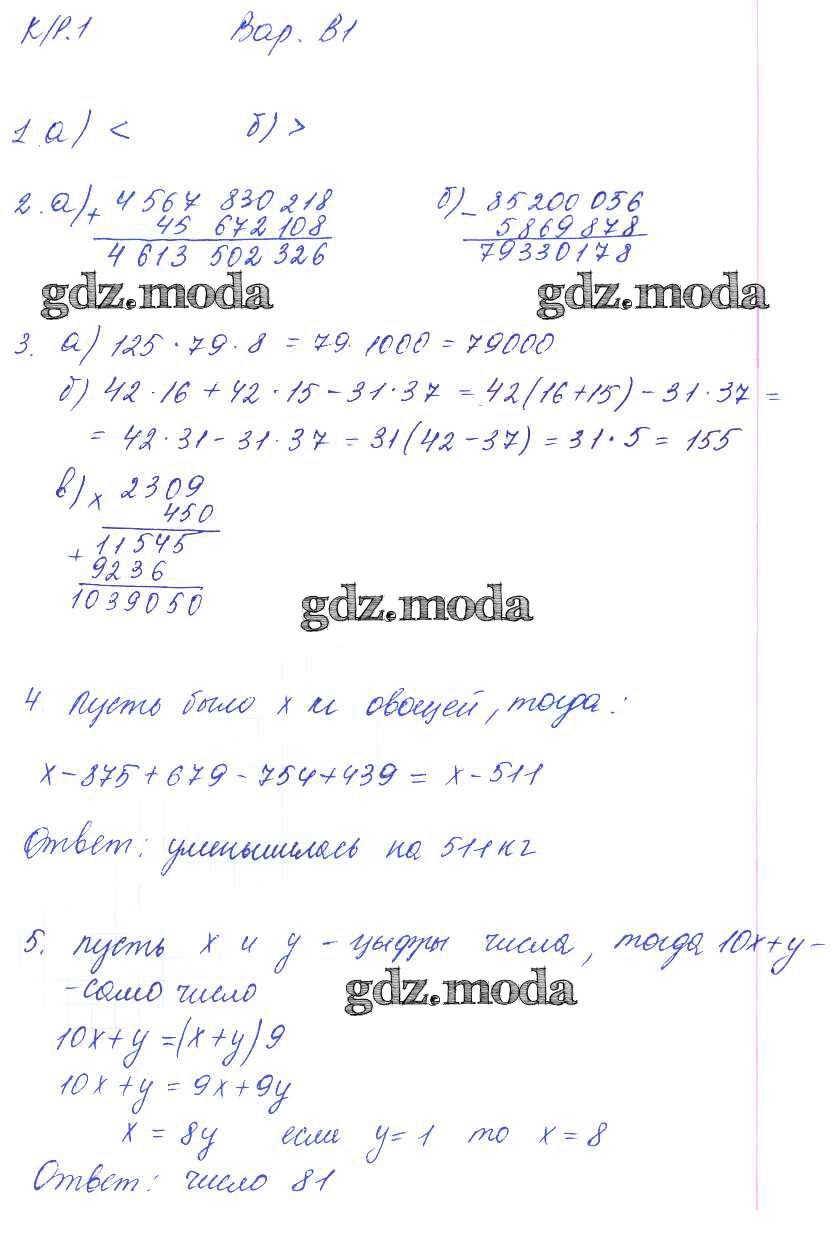 К/Р.1 Вар. В1
1 а) < б) >
2. а) + 4567 830 218 б) - 85200 056
45 672 108 5869 878
4 613 502 326 79330178
gdz.moda gdz.moda
3. а) 125 · 79 · 8 = 79 · 1000 = 79000
б) 42 · 16 + 42 · 15 - 31 · 37 = 42(16+15) - 31 · 37 =
= 42 · 31 - 31 · 37 = 31(42 - 37) = 31 · 5 = 155
в) x 2309
450
+ 11545
9236
1039050
gdz.moda
4. Пусть было x кг овощей, тогда:
x - 875 + 679 - 754 + 439 = x - 511
Ответ: уменьшилась на 511 кг
5. пусть x и y - цыфры числа, тогда 10x + y -
- само число
gdz.moda
10x + y = (x + y) 9
10x + y = 9x + 9y
x = 8y если y = 1 то x = 8
Ответ: число 81